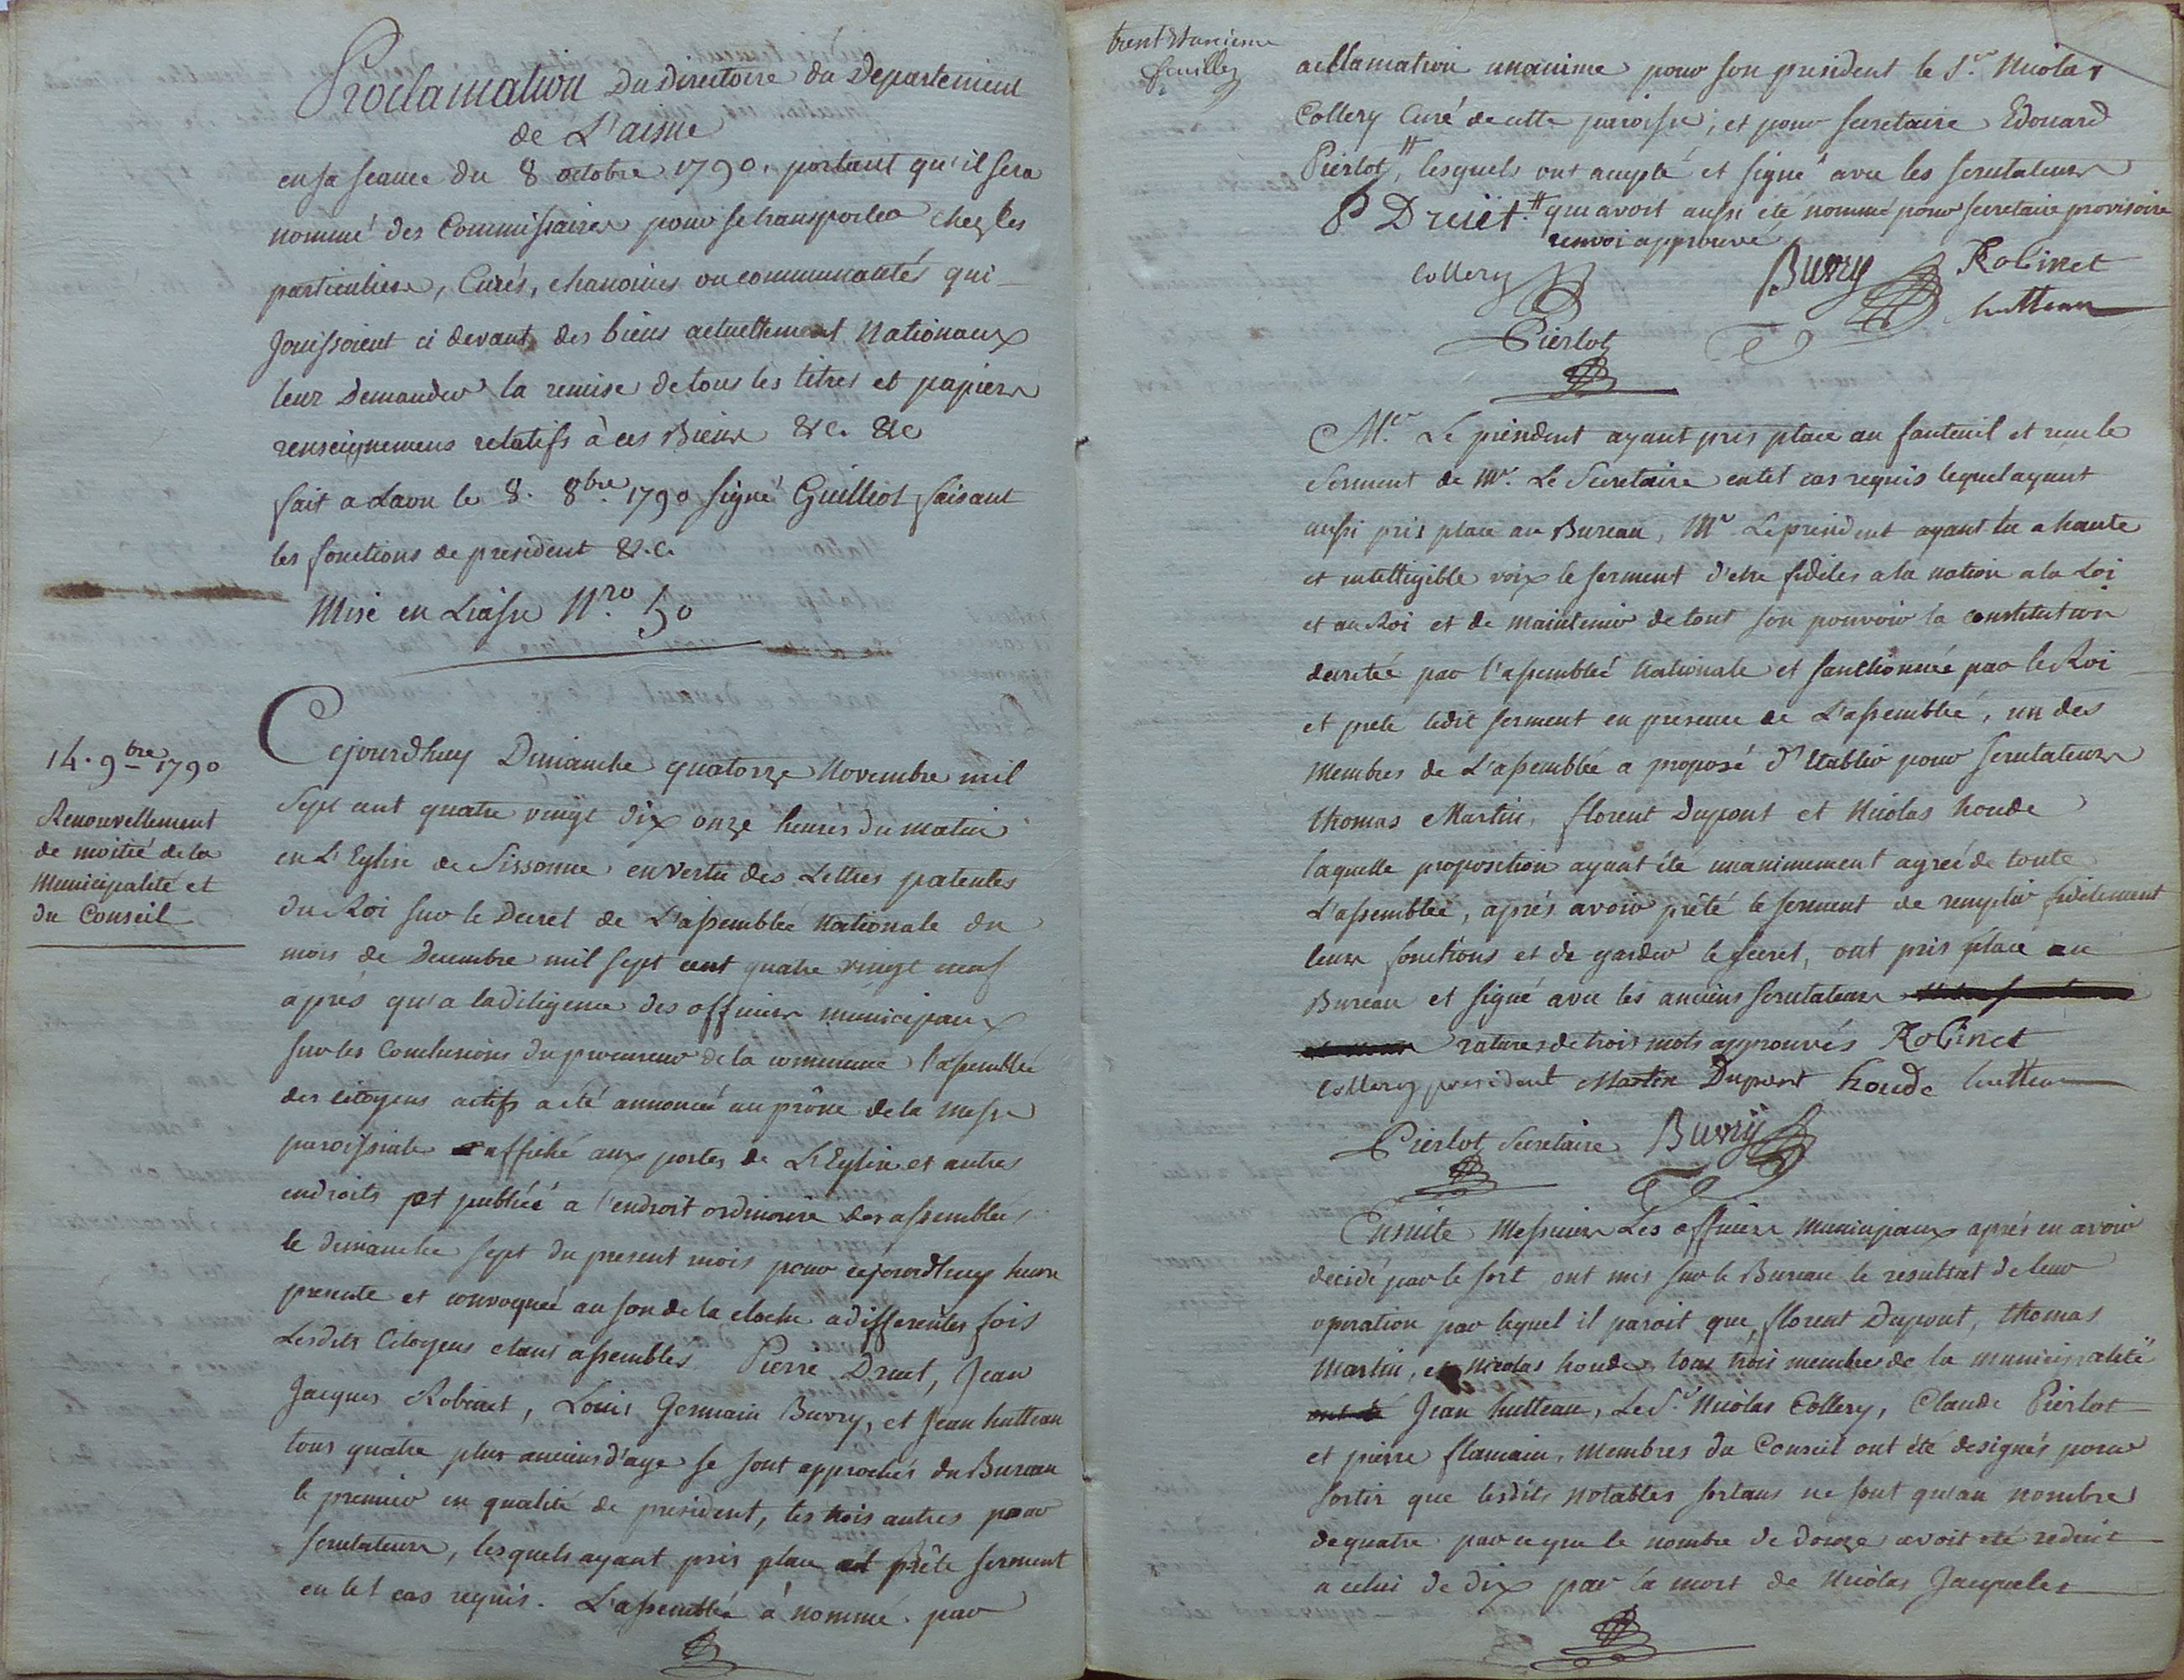 Proclamation Du Directoire du Departement
de L'aisne
en sa seance du 8 octobre 1790. portant qu'il sera
nommé des Commissaires pour se transporter chez les
particuliers, Curés, chanoines ou communautés qui
Jouissoient ci devant des biens actuellement Nationaux
leur Demander la remise de tous les titres et papiers
renseignemens relatifs à ces Biens &c. &c
fait a Laon le 8. 8bre 1790 signé Guilliot faisant
les fonctions de president &.c.
Mise en Liasse Nro. 50
14. 9bre 1790
Renouvellement
de moitié de la
Municipalité et
du Conseil
Cejourdhuy Dimanche quatorze Novembre mil
Sept cent quatre vingt dix onze heures du matin
en L'Eglise de Sissonne en vertu des Lettres patentes
du Roi sur le Decret de L'assemblée Nationale du
mois de Decembre mil sept cent quatre vingt neuf
après qu'a la diligence des officiers municipaux
sur les Conclusions du procureur de la commune l'assemblée
des citoyens actifs a été annoncée au prône de la messe
paroissiale affiché aux portes de L'Eglise et autres
endroits et publiée a l'endroit ordinaire des assemblées
le dimanche sept du present mois pour cejourdhuy heure
presente et convoquée au son de la cloche a differentes fois
Lesdits Citoyens etans assemblés Pierre Druet, Jean
Jacques Robinet, Louis Germain Buvry, et Jean hutteau
tous quatre plus anciens d'age se sont approchés du Bureau
le premier en qualité de president, les trois autres pour
scrutateurs, lesquels ayant pris place et prêté serment
en tel cas requis. L'assemblée a nommé par
trent
feuillez
acclamation unanime pour son president le Sr. Nicolas
Collery Curé de cette paroisse, et pour secretaire Edouard
Pierlot #, lesquels ont accepté et signé avec les scrutateurs
P Druët # qui avoit aussi été nommé pour secretaire provisoire
renvoi approuvé
Collery Buvry Robinet
hutteau
Pierlot
Mr. Le president ayant pris place au fauteuil et recu le
Serment de Mr. Le Secretaire en tel cas requis lequel ayant
aussi pris place au Bureau, Mr Le president ayant lu a haute
et intelligible voix le serment d'etre fideles a la nation a la Loi
et au Roi et de maintenir de tout son pouvoir la constitution
decretée par l'assemblée nationale et sanctionnée par le Roi
et preté ledit serment en presence de L'assemblée, un des
Membres de L'assemblée a proposé d'Etablir pour scrutateurs
thomas Martin, florent Dupont et Nicolas houde
laquelle proposition ayant été unanimement agreé de toute
L'assemblée, aprés avoir prêté le serment de remplir fidelement
leurs fonctions et de garder le secret, ont pris place au
Bureau et signé avec les anciens scrutateurs
ratures de trois mots approuvés Robinet
Collery president Martin Dupont houde hutteau
Pierlot Secretaire Buvry
Ensuite Messieurs Les officiers Municipaux aprés en avoir
decidé par le sort ont mis sur le Bureau le resultat de leur
operation par lequel il paroit que florent Dupont, thomas
Martin, et Nicolas houde tous trois membres de la municipalité
Jean hutteau, Le Sr. Nicolas Collery, Claude Pierlot
et pierre flamain, membres du Conseil ont été designés pour
sortir que lesdits notables sortans ne sont qu'au nombre
de quatre parceque le nombre de douze avoit été reduit
a celui de dix par la mort de Nicolas Jacquelet